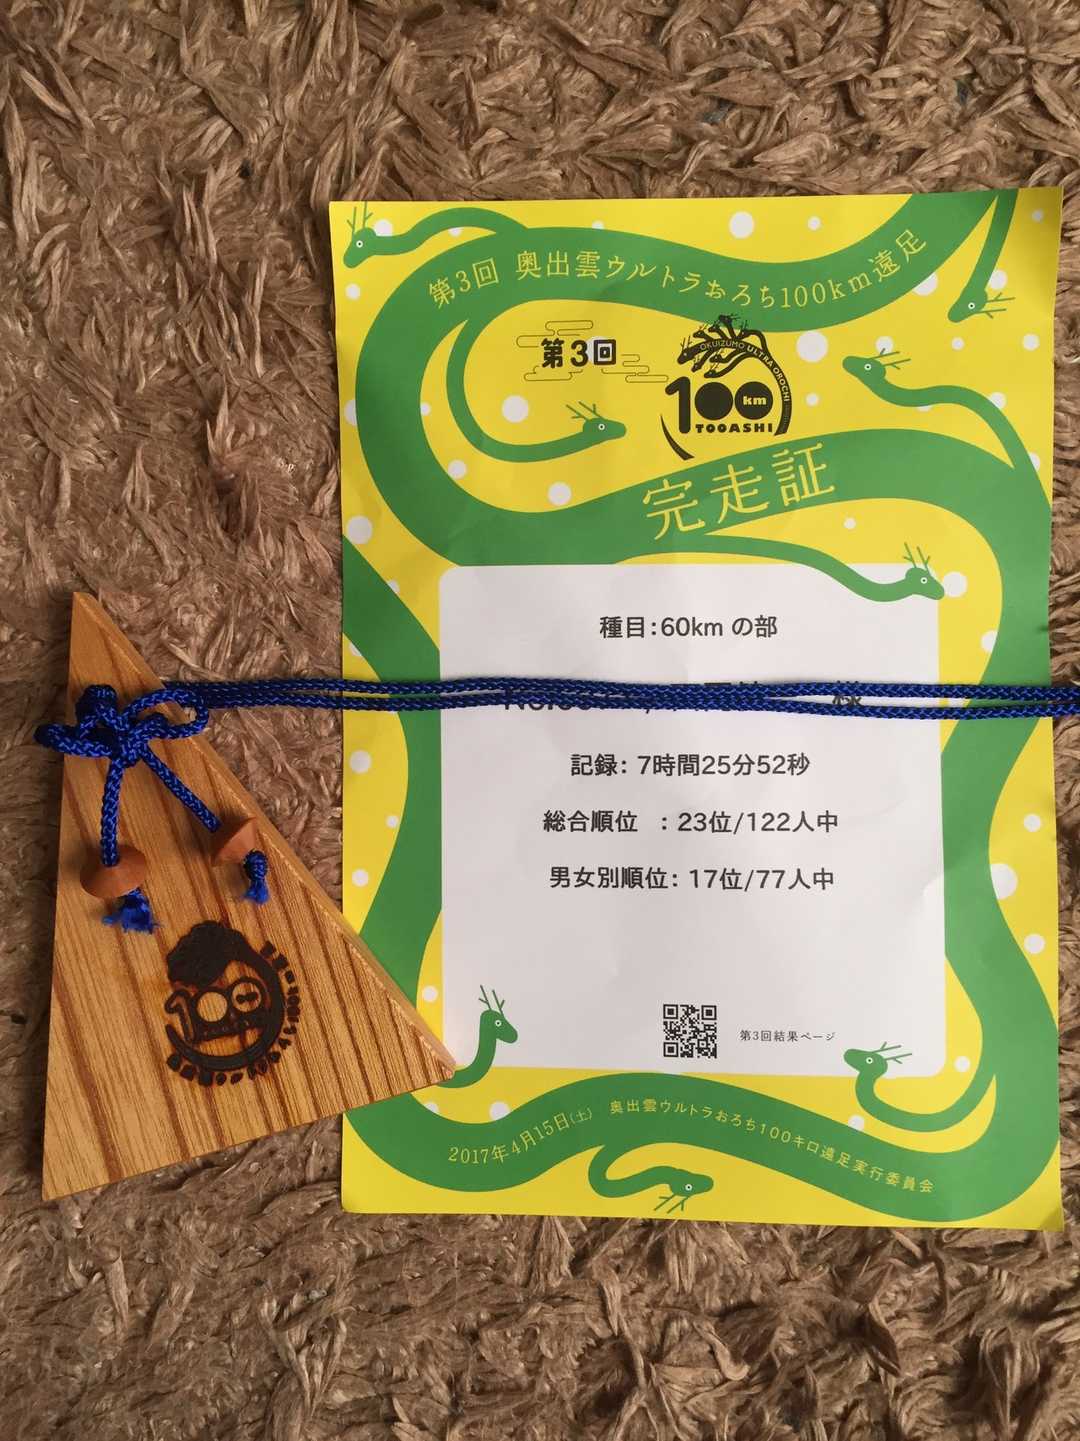 第3回 奥出雲ウルトラおろち100km遠足
第3回
OKUIZUMO ULTRA OROCHI
100km
TOOASHI
完走証
種目：60km の部
様
記録： 7時間25分52秒
総合順位 ： 23位/122人中
男女別順位： 17位/77人中
第3回結果ページ
2017年4月15日(土) 奥出雲ウルトラおろち100キロ遠足実行委員会
100